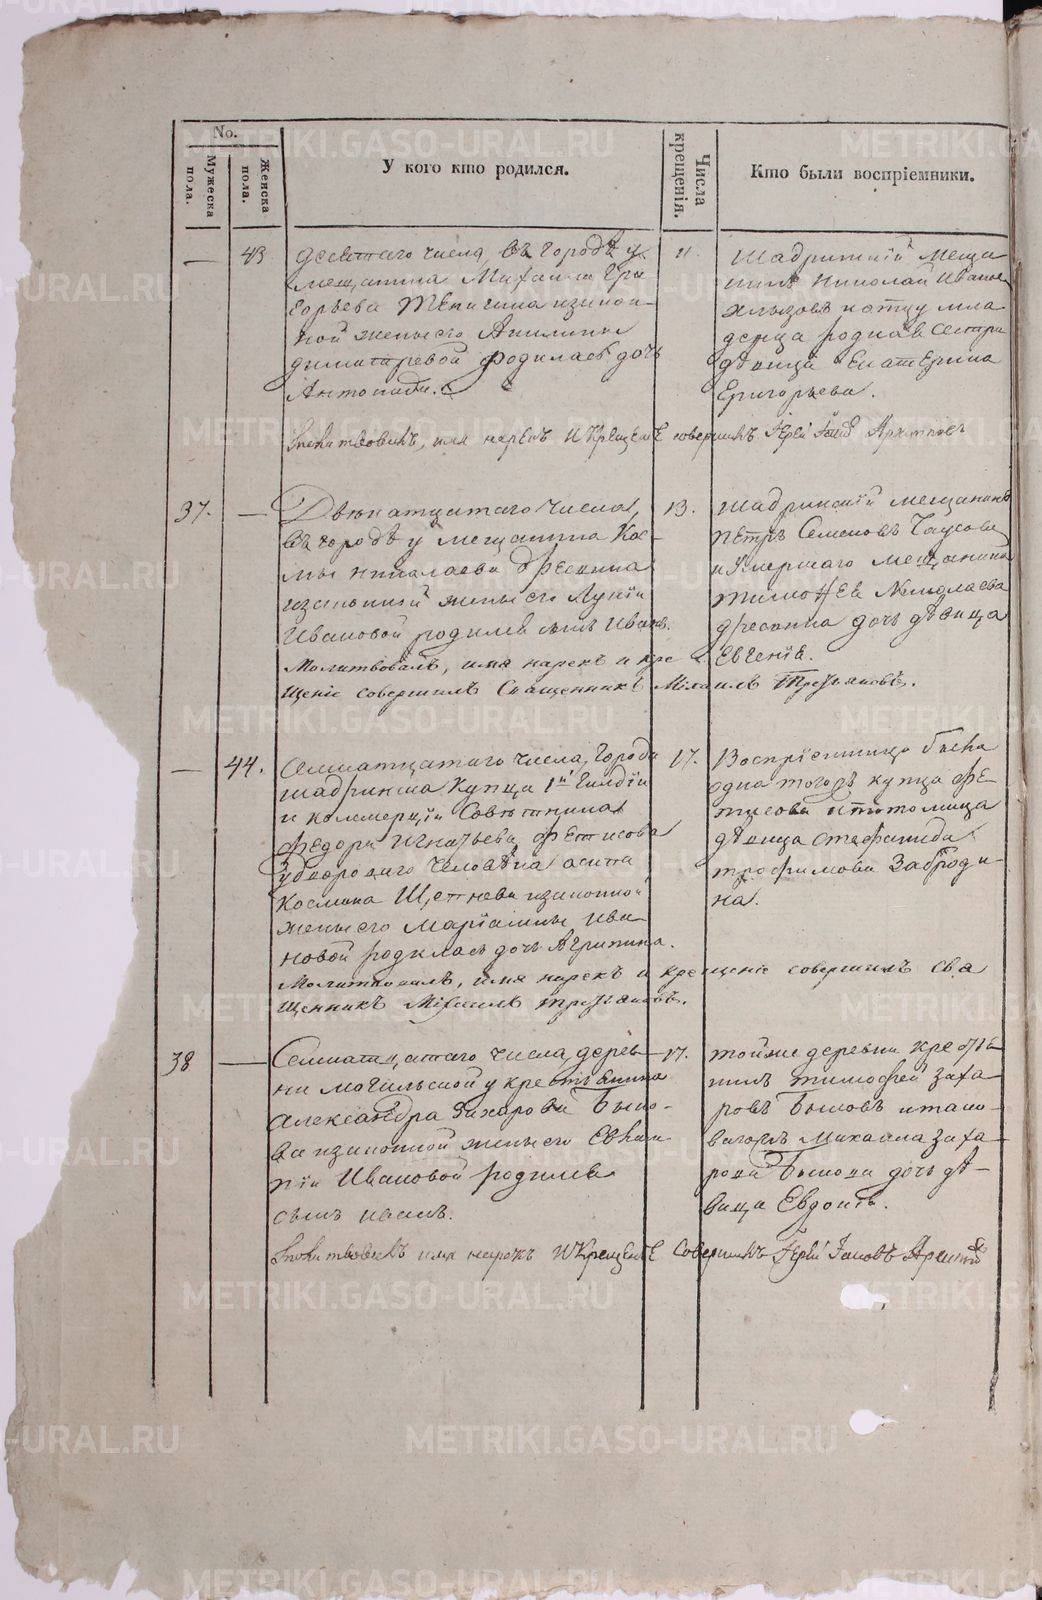 No.
Мужеска пола.
Женска пола.
У кого кто родился.
Числа крещенія.
Кто были воспріемники.
— 43
десятаго числа, въ городѣ у
мещанина Михаила Гри
горьева
ной жены его Акилины
димитрѣевой родилась дочь
11.
Шадринскій меща
нинъ Николай Иванов
и отцу мла
денца родная сестра
дѣвица Екатерина
Григорьева.
Молитвовалъ, имя нарекъ и крещеніе совершилъ Іерей
37. —
Двѣнатцатаго числа,
въ городѣ у мещанина Кос-
мы николаева
изаконной жены его Лукіи
Ивановой родился сынъ Иванъ.
13.
Шадринскій мещанинъ
петръ Семеновъ
и умершаго мещанина
тимофея Николаева
дочь дѣвица
Евгенія.
Молитвовалъ, имя нарекъ и кре
щеніе совершилъ Священникъ Михаилъ Третьяковъ.
— 44.
Семнатцатаго числа, Города
шадринска Купца 1й Гилдіи
и коммерціи Совѣтника
Федора Игнатьева Фетисова
удвороваго человѣка
Космина изаконной
жены его Маріамны Ива
новой родилась дочь Агрипина.
17.
Воспріемница была
одна тогожъ купца Фе-
тисова питомица
дѣвица Стефанида
трофимова Забод и
на.
Молитвовалъ, имя нарекъ и крещеніе совершилъ Свя
щенникъ Михаилъ третьяковъ.
38 —
Семнатцатаго числа, дерев-
ни могильской у крестьянина
александра Захарова Быко-
ва изаконной жены его Евлам-
піи Ивановой родился
сынъ
17.
тойже деревни кресть-
нинъ тимофей Заха-
ровъ Быковъ и тако-
вагожъ Михаила Заха-
рова Быкова дочь дѣ-
вица Евдокія.
Молитвовалъ имя нарекъ и крещеніе совершилъ Іерей
METRIKI.GASO-URAL.RU